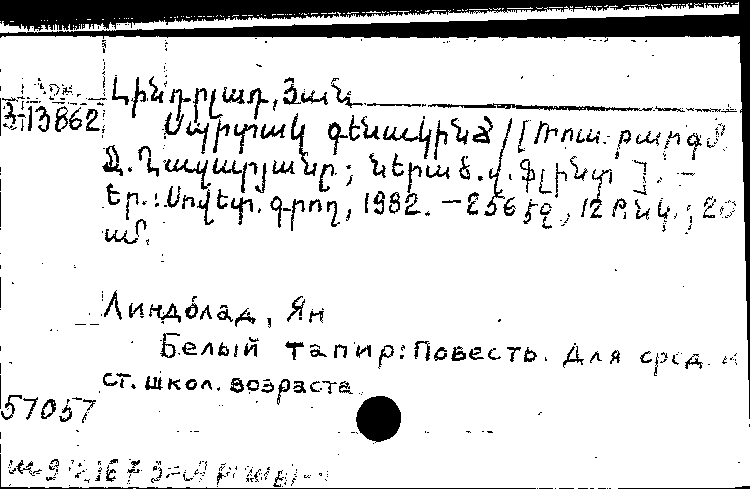 Լինդբլադ, Յան
3-13862
Սպիտակ
[Ռուս. բարգմ.
Զ. Ղազարյանը; ներած. Վ. Ֆլինտ]. –
Եր.: Սովետ. գրող, 1982. – 256 էջ, 12 թ. նկ.; 20
սմ.
Линдблад, Ян
Белый тапир: Повесть. Для сред. и
ст. школ. возраста.
57057